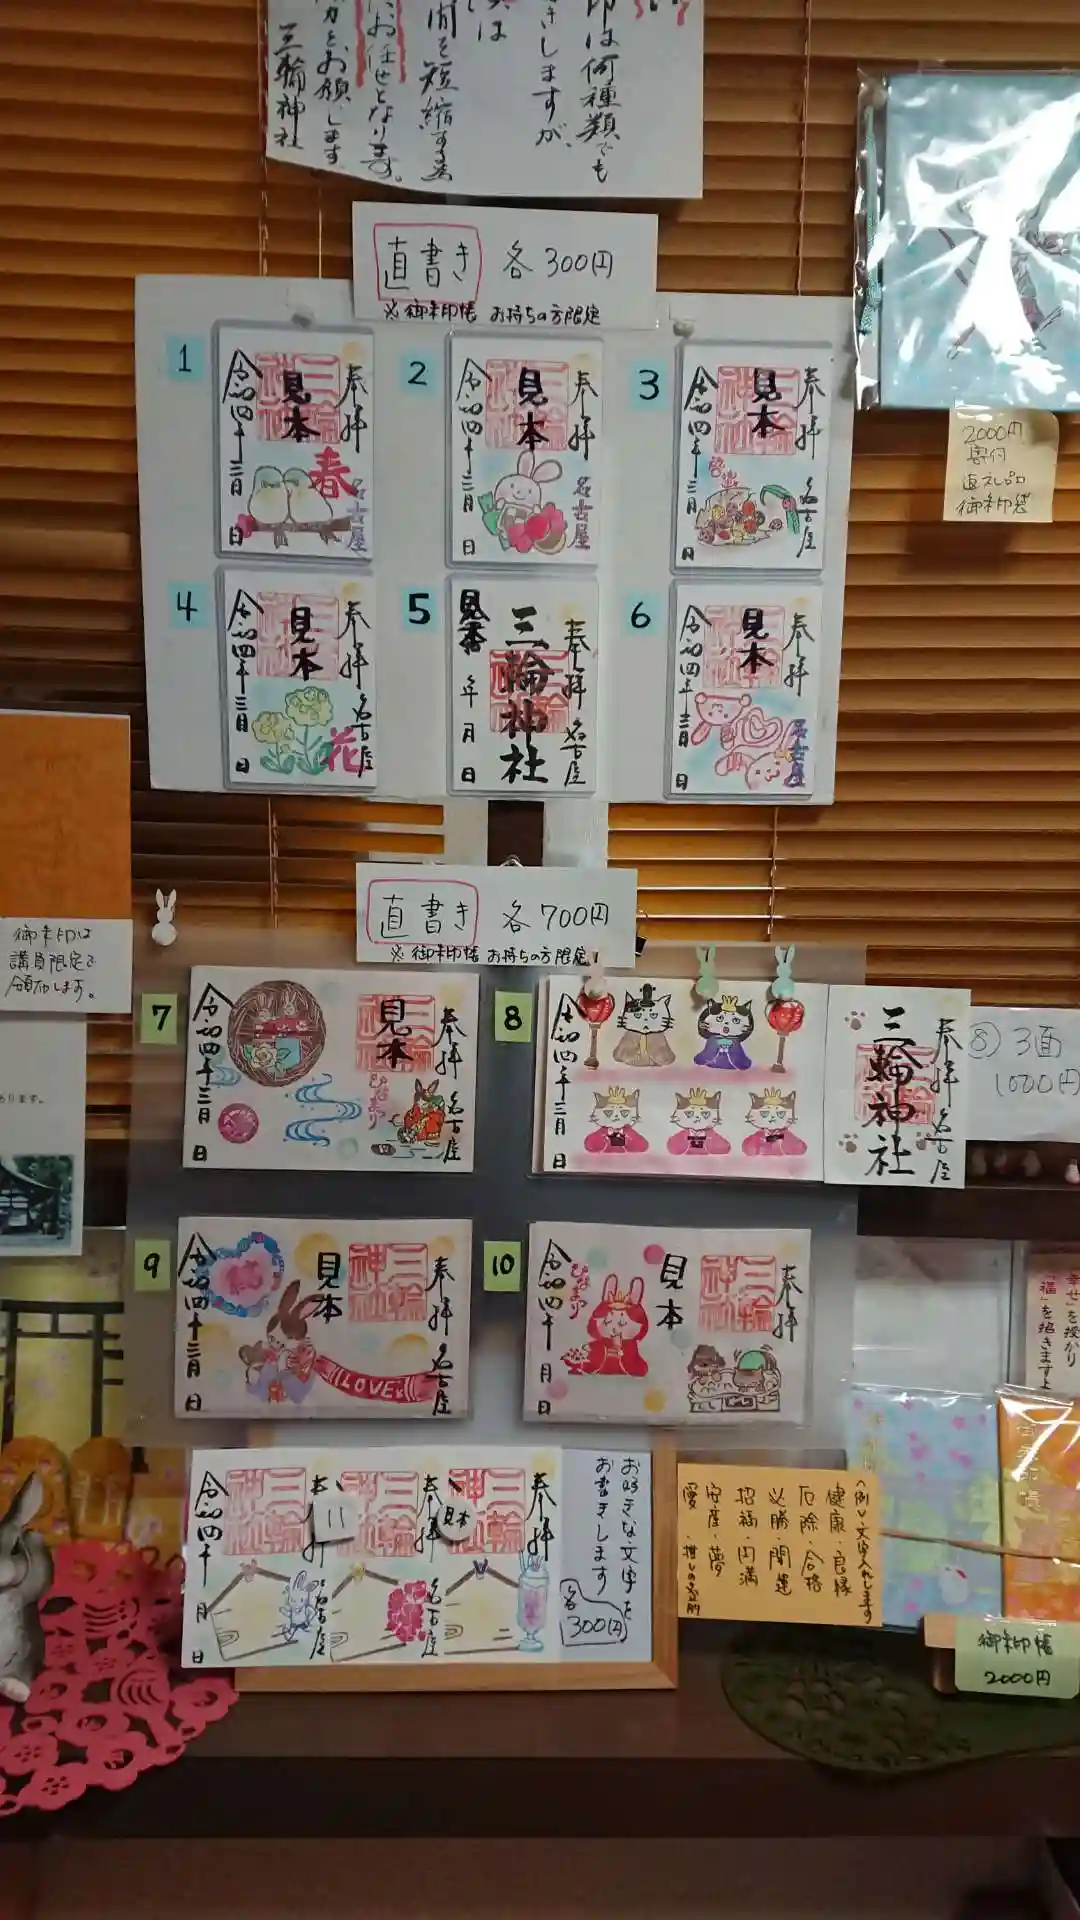 印は何種類でも
きしますが、
は
間を短縮する為
にお任せとなります。
力とお願します
三輪神社
直書き 各300円
※御朱印帳 お持ちの方限定
2000円
寄付
返礼品
御朱印袋
1
奉拝
三輪神社
見本
春
名古屋
令和四年三月 日
2
奉拝
三輪神社
見本
名古屋
令和四年三月 日
3
奉拝
三輪神社
見本
名古屋
令和四年三月 日
4
奉拝
三輪神社
見本
花
名古屋
令和四年三月 日
5
奉拝
三輪神社
名古屋
見本
年 月 日
6
奉拝
三輪神社
見本
名古屋
令和四年三月 日
直書き 各700円
※御朱印帳 お持ちの方限定
御朱印は
講員限定で
領布します。
あります。
7
奉拝
見本
ひなまつり
名古屋
令和四年三月 日
8
令和四年三月 日
奉拝
三輪神社
名古屋
⑧3面
1000円
9
奉拝
三輪神社
見本
名古屋
LOVE
令和四年三月 日
10
奉拝
三輪神社
見本
ひなまつり
令和四年 月 日
幸せ」を授かり
「福」を招きますよ
11
奉拝
三輪神社
見本
奉拝
名古屋
奉拝
名古屋
令和四年 月 日
お好きな文字を
お書きします
各300円
(例)・文字入れします
健康・良縁
厄除・合格
必勝・開運
招福・円満
安産・夢
愛・推しの名前
御朱印帳
御朱印帳
2000円